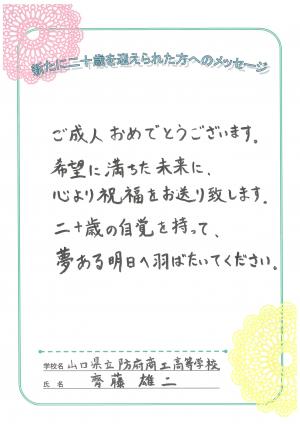 新たに二十歳を迎えられた方へのメッセージ
ご成人おめでとうございます。
希望に満ちた未来に、
心より祝福をお送り致します。
二十歳の自覚を持って、
夢ある明日へ羽ばたいてください。
学校名 山口県立防府商工高等学校
氏名 齊藤雄二